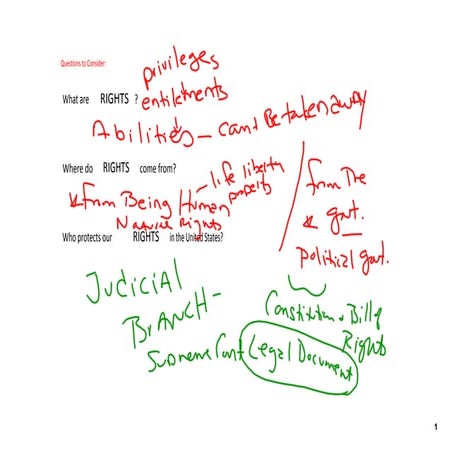 Questions to Consider:
privileges
What are RIGHTS ?
entitlements
Abilities – can't Be taken away
Where do RIGHTS come from?
life liberty
property
from Being Human
Natural Rights
from The
govt.
Political govt.
Who protects our RIGHTS in the United States?
Judicial
BrANCH –
Supreme Court
Constitution + Bill of
Rights
Legal Document
1